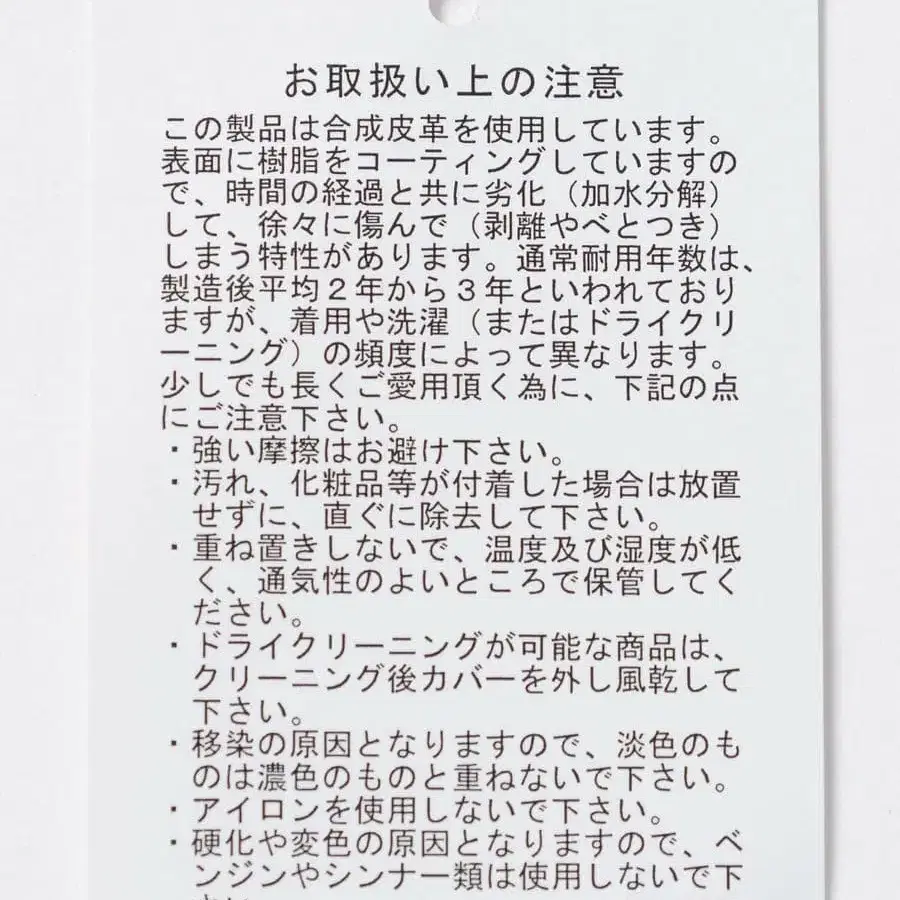 お取扱い上の注意
この製品は合成皮革を使用しています。
表面に樹脂をコーティングしていますの
で、時間の経過と共に劣化（加水分解）
して、徐々に傷んで（剥離やべとつき）
しまう特性があります。通常耐用年数は、
製造後平均２年から３年といわれており
ますが、着用や洗濯（またはドライクリ
ーニング）の頻度によって異なります。
少しでも長くご愛用頂く為に、下記の点
にご注意下さい。
・強い摩擦はお避け下さい。
・汚れ、化粧品等が付着した場合は放置
せずに、直ぐに除去して下さい。
・重ね置きしないで、温度及び湿度が低
く、通気性のよいところで保管してく
ださい。
・ドライクリーニングが可能な商品は、
クリーニング後カバーを外し風乾して
下さい。
・移染の原因となりますので、淡色のも
のは濃色のものと重ねないで下さい。
・アイロンを使用しないで下さい。
・硬化や変色の原因となりますので、ベ
ンジンやシンナー類は使用しないで下